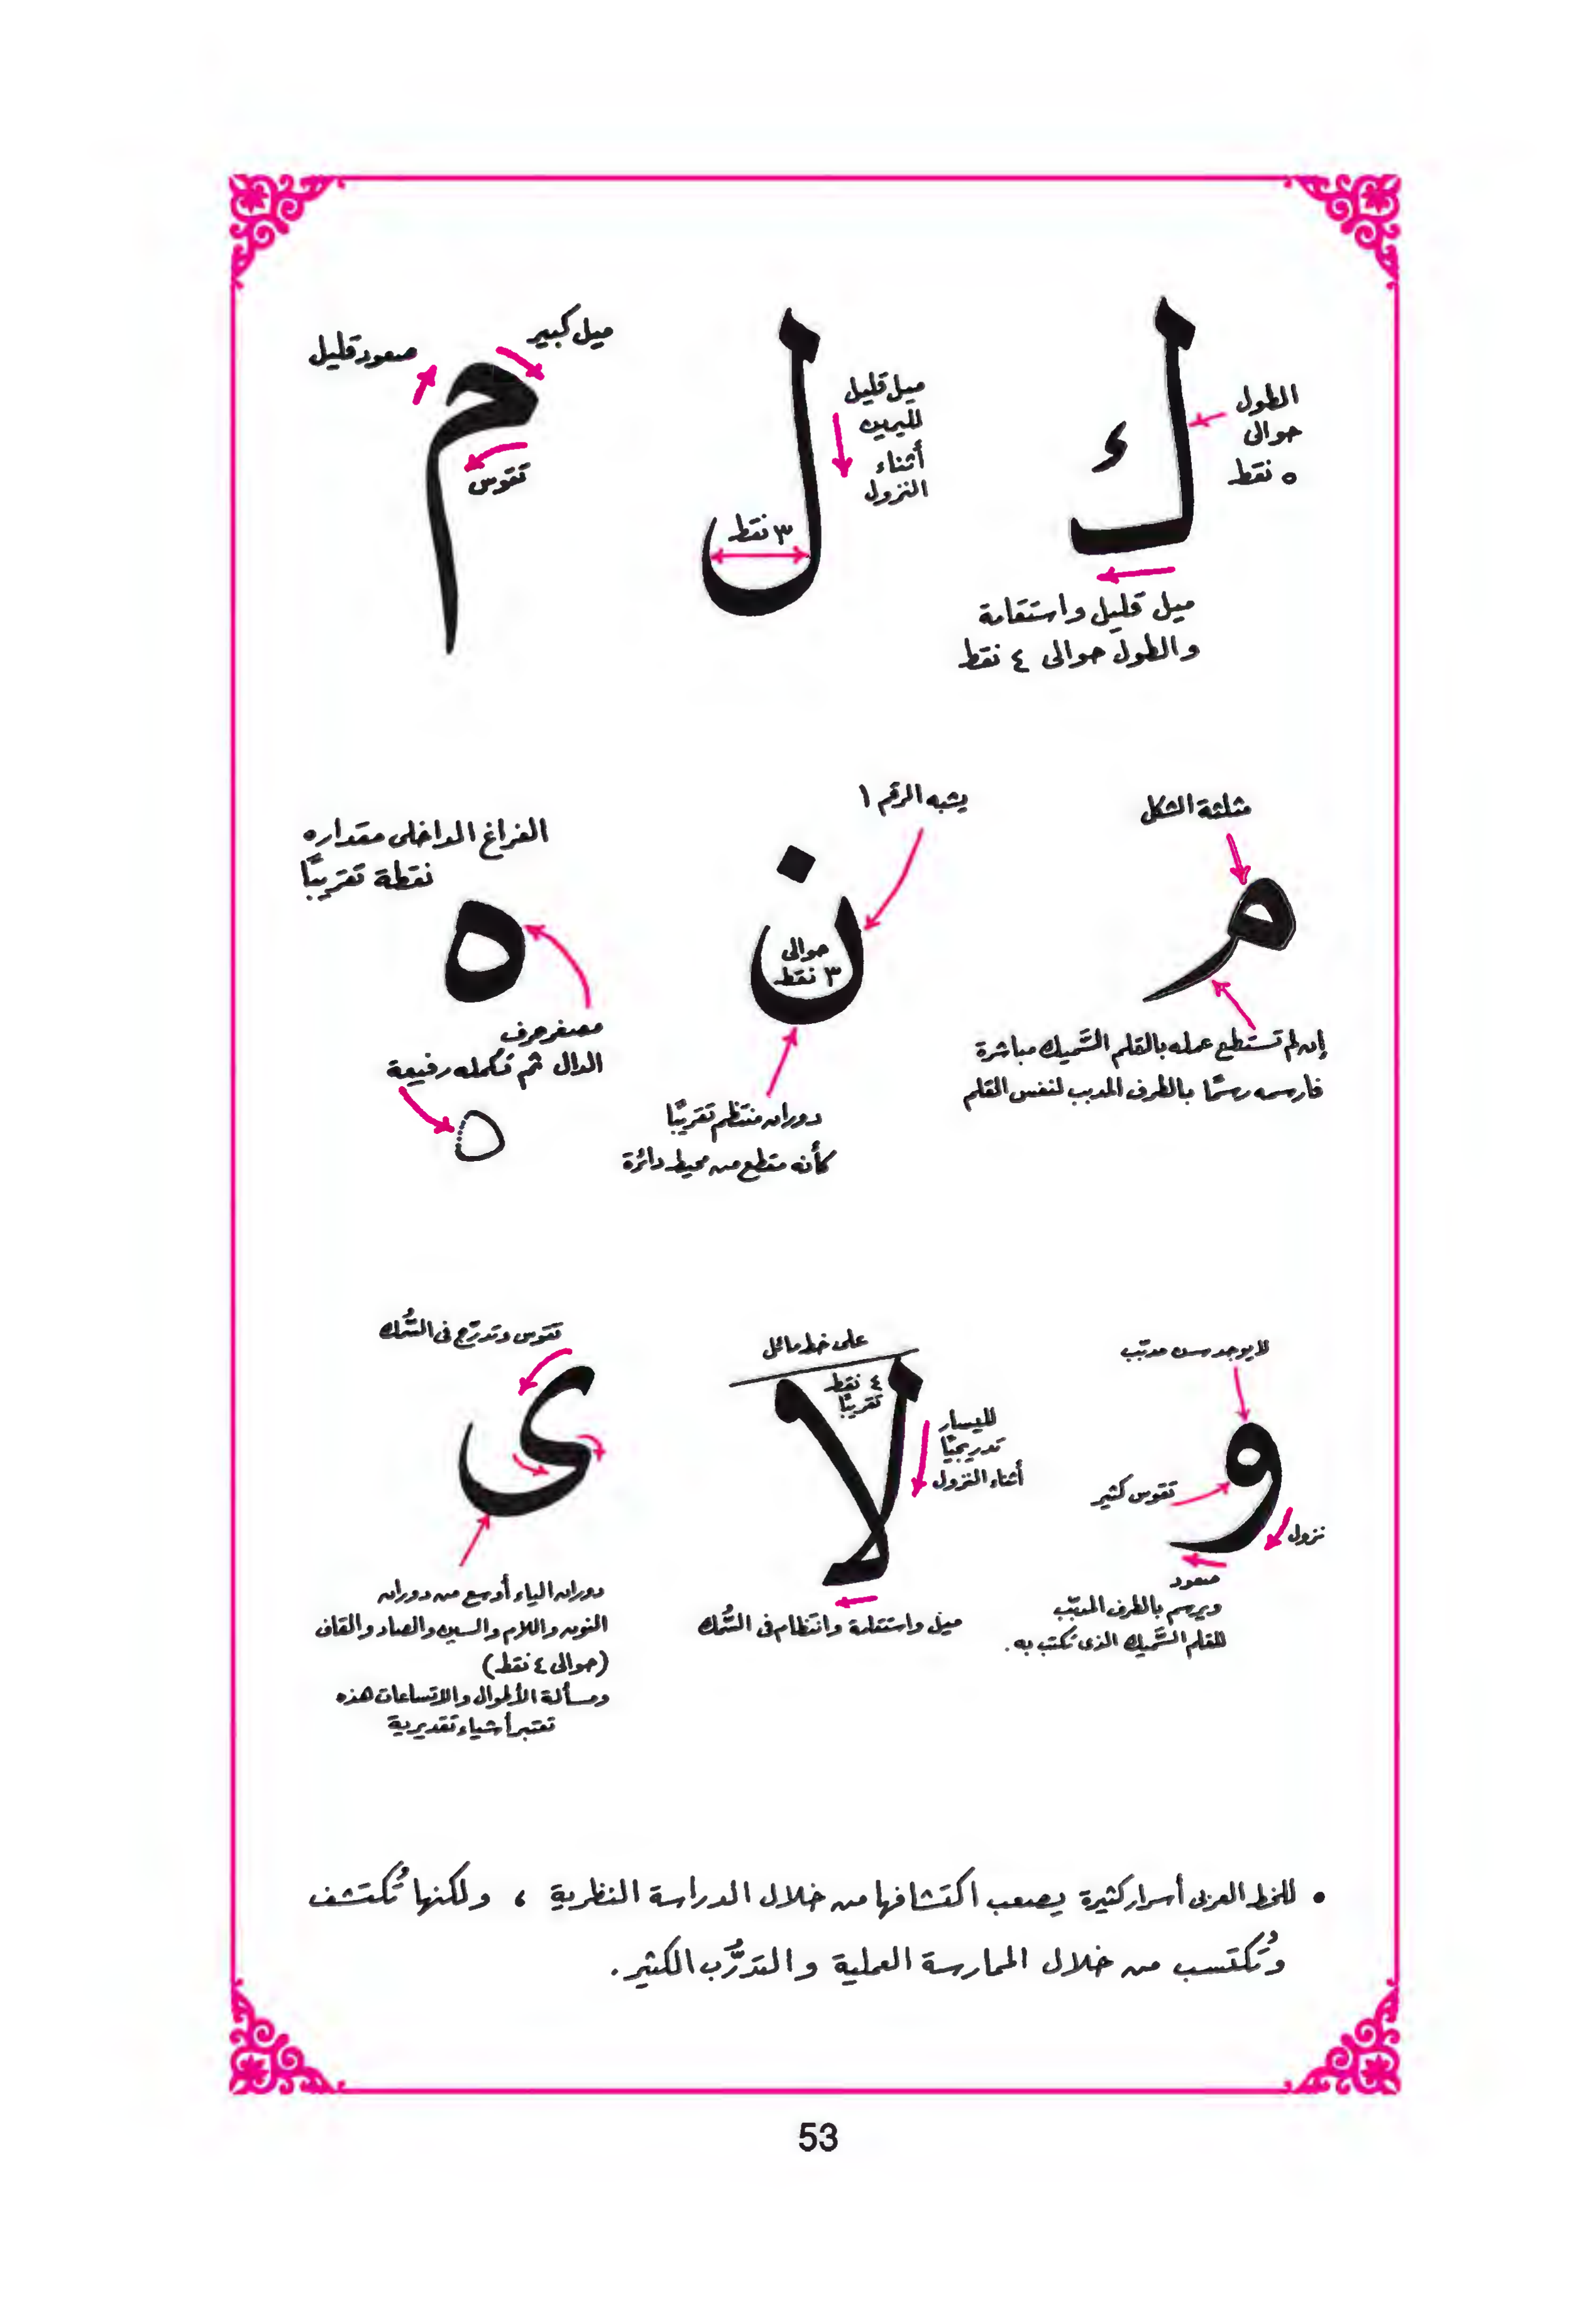 ك
الطول
حوالى
٥ نقط
ميل قليل واستقامة
والطول حوالى ٤ نقط
ل
ميل قليل
لليمين
أثناء
النزول
٣ نقط
م
ميل كبير
صعود قليل
تقوس
م
مثلثة الشكل
إن لم تستطع عمله بالقلم السَّميك مباشرة
فارسمه رسمًا بالطرف المدبب لنفس القلم
ن
يشبه الرقم ١
حوالى
٣ نقط
دوران منتظم تقريبًا
كأنه مقطع من محيط دائرة
ه
الفراغ الداخلى مقداره
نقطة تقريبًا
مصغر حرف
الدال ثم تكمله رفيعة
و
لا يوجد سن مدبّب
تقوس كثير
نزول
صعود
ويرسم بالطرف المدبّب
للقلم السَّميك الذى تكتب به.
لا
على خط مائل
٤ نقط
تقريبًا
لليسار
تدريجيًا
أثناء النزول
ميل واستقامة وانتظام فى السُّمك
ى
تقوس وتدرّج فى السُّمك
دوران الياء أوسع من دوران
النون واللام والسين والصاد والقاف
(حوالى ٤ نقط)
ومسألة الأطوال والاتساعات هذه
تعتبر أشياء تقديرية
• للخط العربى أسرار كثيرة يصعب اكتشافها من خلال الدراسة النظرية ، ولكنها تُكتشف
وتُكتسب من خلال الممارسة العملية والتدرُّب الكثير.
53